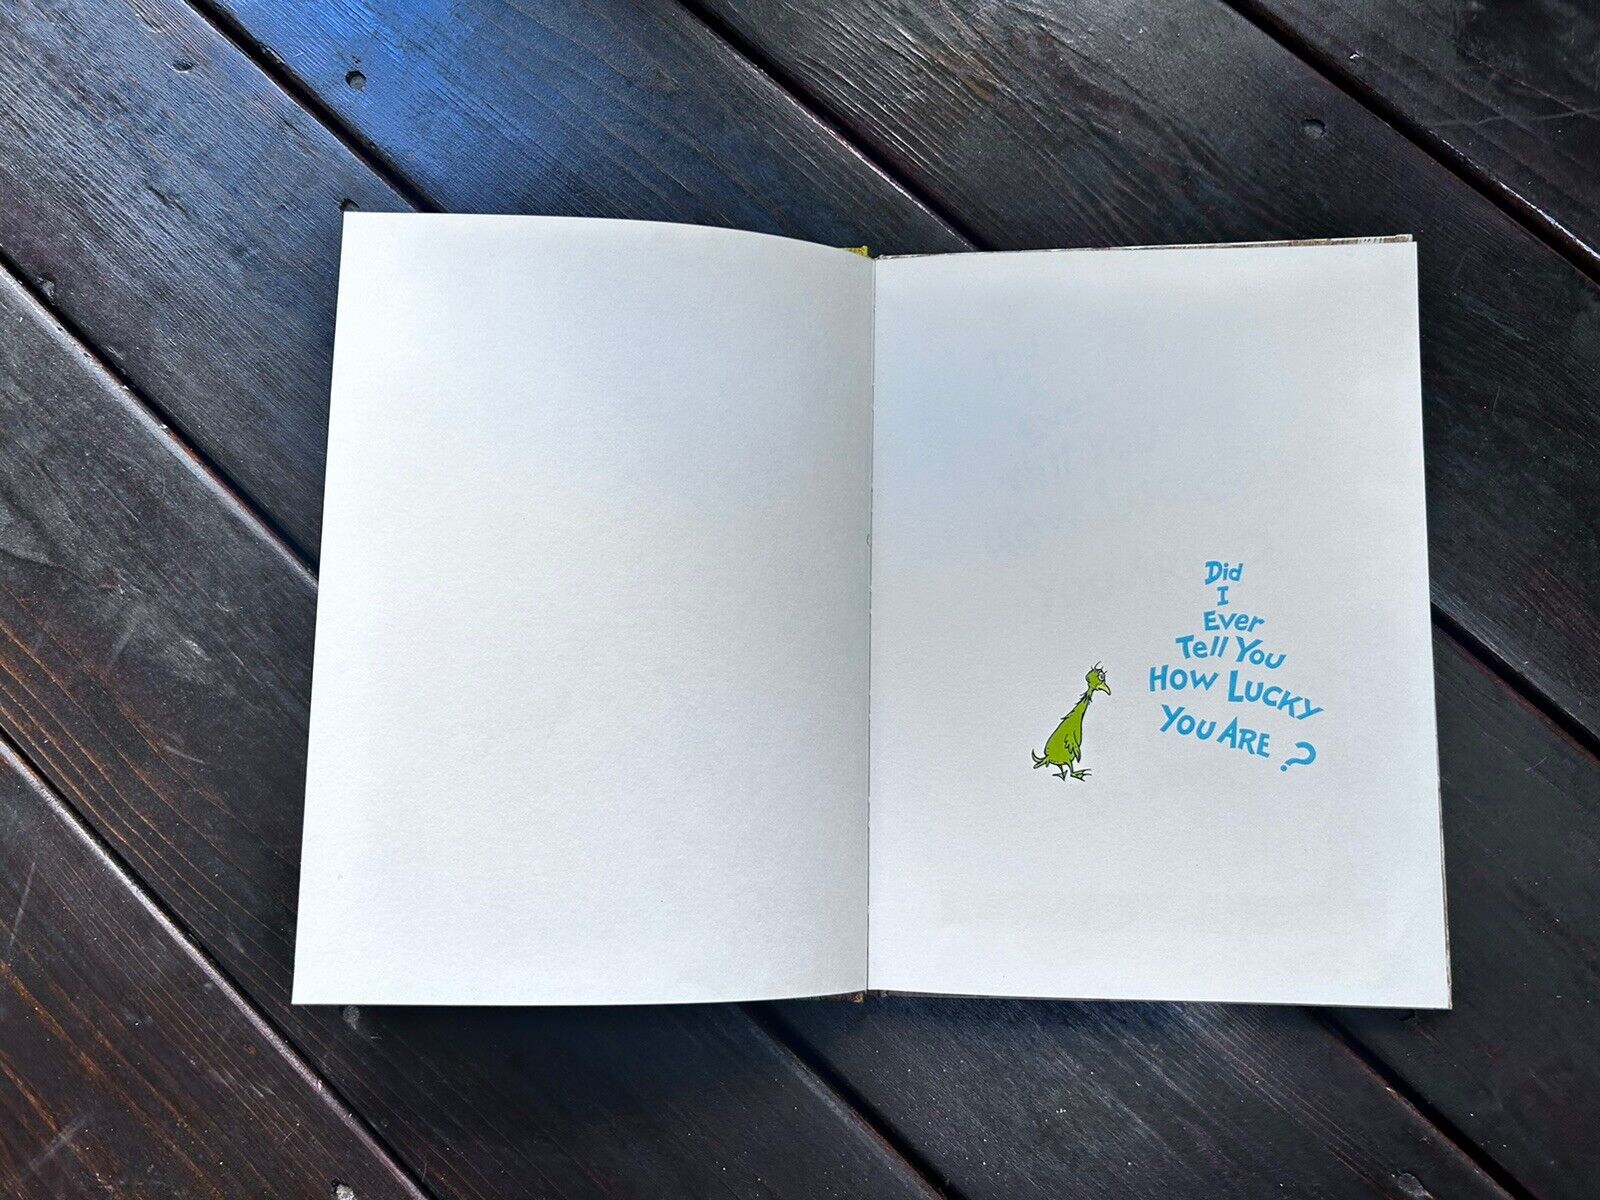 Did
I
Ever
Tell You
How Lucky
You Are?